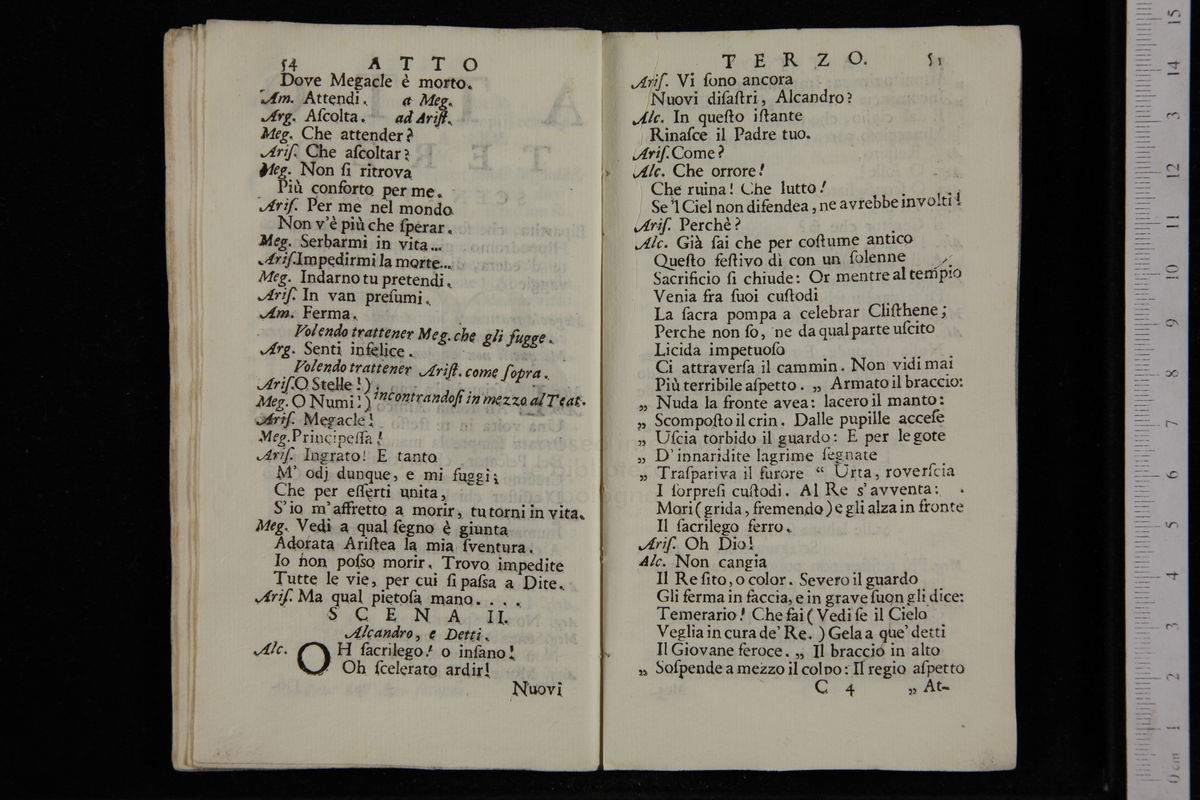 54 ATTO
Dove Megacle è morto.
Am. Attendi. a Meg.
Arg. Aſcolta. ad Ariſt.
Meg. Che attender?
Ariſ. Che aſcoltar?
Meg. Non ſi ritrova
Più conforto per me.
Ariſ. Per me nel mondo
Non v'è più che ſperar.
Meg. Serbarmi in vita...
Ariſ. Impedirmi la morte...
Meg. Indarno tu pretendi.
Ariſ. In van preſumi.
Am. Ferma.
Volendo trattener Meg. che gli fugge.
Arg. Senti infelice.
Volendo trattener Ariſt. come ſopra.
Ariſ. O Stelle!)
Meg. O Numi!) incontrandoſi in mezzo al Teat.
Ariſ. Megacle!
Meg. Principeſſa!
Ariſ. Ingrato! E tanto
M' odj dunque, e mi fuggi;
Che per eſſerti unita,
S'io m'affretto a morir, tu torni in vita.
Meg. Vedi a qual ſegno è giunta
Adorata Ariſtea la mia ſventura.
Io non poſso morir. Trovo impedite
Tutte le vie, per cui ſi paſsa a Dite.
Ariſ. Ma qual pietoſa mano....
SCENA II.
Alcandro, e Detti.
Alc. OH ſacrilego! o inſano!
Oh ſcelerato ardir!
Nuovi
TERZO. 55
Ariſ. Vi ſono ancora
Nuovi diſaſtri, Alcandro?
Alc. In queſto iſtante
Rinaſce il Padre tuo.
Ariſ. Come?
Alc. Che orrore!
Che ruina! Che lutto!
Se 'l Ciel non difendea, ne avrebbe involti!
Ariſ. Perchè?
Alc. Già ſai che per coſtume antico
Queſto feſtivo dì con un ſolenne
Sacrificio ſi chiude: Or mentre al tempio
Venia fra ſuoi cuſtodi
La ſacra pompa a celebrar Cliſthene;
Perche non ſo, ne da qual parte uſcito
Licida impetuoſo
Ci attraverſa il cammin. Non vidi mai
Più terribile aſpetto. „ Armato il braccio:
„ Nuda la fronte avea: lacero il manto:
„ Scompoſto il crin. Dalle pupille acceſe
„ Uſcia torbido il guardo: E per le gote
„ D'innaridite lagrime ſegnate
„ Traſpariva il furore “ Urta, roverſcia
I ſorpreſi cuſtodi. Al Re s'avventa:
Mori (grida, fremendo) e gli alza in fronte
Il ſacrilego ferro.
Ariſ. Oh Dio!
Alc. Non cangia
Il Re ſito, o color. Severo il guardo
Gli ferma in faccia, e in grave ſuon gli dice:
Temerario! Che fai (Vedi ſe il Cielo
Veglia in cura de' Re.) Gela a que' detti
Il Giovane feroce. „ Il braccio in alto
„ Soſpende a mezzo il colpo: Il regio aſpetto
C 4 „ At-